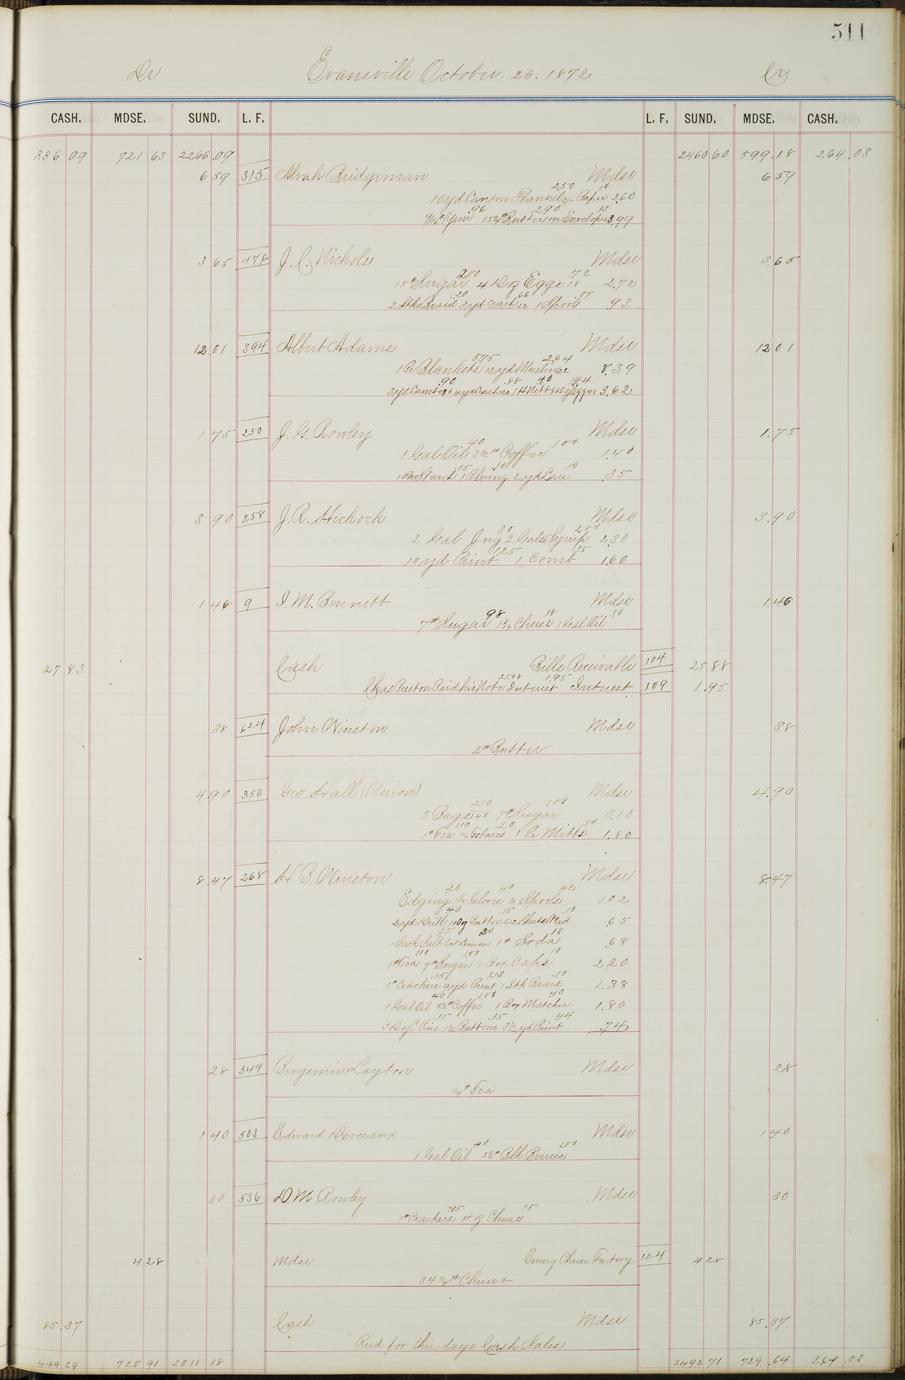 511
Dr Evansville October. 26. 1872 Cr
CASH. MDSE. SUND. L. F. L. F. SUND. MDSE. CASH.
336 09 721 63 2266.09 2460 60 599.18 264.03
6 59 315 Alvah Bridgeman Mdse 6 59
10 yd Canton Flannel 250 Paper 10 2.60
96 290 13 3.99
3 65 476 J. C. Nichols Mdse 3.65
15# Sugar 200 4 Doz Eggs 18 72 2.72
2 Stk Braid 20 yd Crash 66 1 Spool 07 93
12 01 394 Albert Adams Mdse 12 01
1 Pr Blankets 575 12 yd Muslin 22 264 8.39
90 88 40 144 3.62
1 75 250 J. G. Rowley Mdse 1.75
1 Gal Oil 40 Coffee 100 1.40
Starch 15 1 Bluing 10 2 yd Lace 10 .35
3 90 258 J. R. Hickock Mdse 3.90
2 Gal Jug 30 2 Gals Syrup 200 2.30
10 yd Print 125 1 Comb 35 1.60
1 46 9 I. M. Bennett Mdse 1.46
7# Sugar 98 Cheese 18 1 Gal Oil 30
27 83 Cash Bills Receivable 104 25 88
Chas Preston Paid his Note 2588 Interest 1.95 Interest 109 1.95
38 624 John Winston Mdse 38
2# Butter
4 90 353 Geo Hall (Union) Mdse 4.90
3 Bags 210 Sugar 100 3.10
Tea 110 Tobacco 20 1 Pr Mitts 50 1.80
8.47 268 H. B. Winston Mdse 8.47
Edging 20 Gloves 40 6 Spools 42 1.02
2 yd Drill 40 1 Doz Buttons 15 2 Sheets Wad 10 65
1 Sack Salt 25 Lemon 30 1# Soda 13 .68
Tea 110 7# Sugar 100 1 Box Caps 10 2 20
1# Crackers 15 9 yd Print 113 1 Stk Braid 10 1.38
1 Gal Oil 40 Coffee 100 1 Box Matches 40 1.80
3 Doz Pins 15 Buttons 15 yd Print 44 .74
28 344 Benjamin Layton Mdse 28
1/4# Tea
1 40 503 Edward Devereaux Mdse 1 40
1 Gal Oil 40 Blk Berries 100
30 536 D. M. Rowley Mdse 30
1# Crackers 15 15 oz Cheese 15
4 28 Mdse Emery Cheese Factory 124 4 28
Cheese
85.37 Cash Mdse 85.37
Recd for this days Cash Sales
449 29 725 91 2311 18 2492 71 729.64 264 03